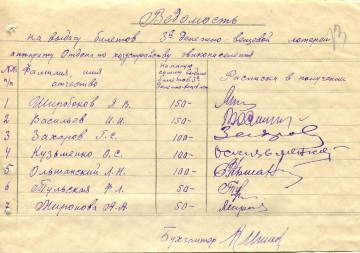 Ведомость
на выдачу билетов 3й денежно вещевой лотереи
аппарату Отдела по хозустройству эвиконаселения
№№ п/п Фамилия, имя отчество На какую сумму выдано билетов 3й денежно-вещевой Расписка в получении
1 Широбоков Я. В. 150-
2 Васильев И. И. 150-
3 Захаров Г. Е. 100- Захаров
4 Кузьменко О. С. 100-
5 Ольшанский Л. Н. 100-
6 Тульская Ф. Л. 50- Ту
7 Миронова А. А 50-
Бухгалтер